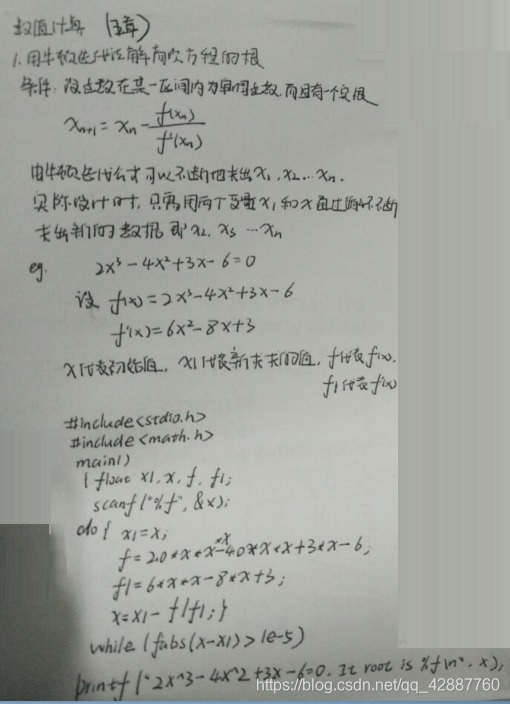 数值计算 (五章)
1.用牛顿迭代法解高次方程的根
条件:设函数在某一区间内为单调函数,而且有一个实根
xn+1 = xn - f(xn)/f'(xn)
由牛顿迭代公式可以不断地求出x1, x2...xn.
实际设计时,只要用两个变量x1和x通过循环不断
求出新的数据 即x2, x3 ...xn
eg. 2x³-4x²+3x-6=0
设 f(x)=2x³-4x²+3x-6
f'(x)=6x²-8x+3
x代表初始值, x1代表新求来的值, f代表f(x).
f1代表f'(x)
#include<stdio.h>
#include<math.h>
main()
{ float x1, x, f, f1;
scanf("%f", &x);
do{ x1=x;
f=2.0*x*x*x-4.0*x*x+3*x-6;
f1=6*x*x-8*x+3;
x=x1-f/f1;}
while(fabs(x-x1)>1e-5)
printf("2x^3-4x^2+3x-6=0. It root is %f\n", x);
https://blog.csdn.net/qq_42887760